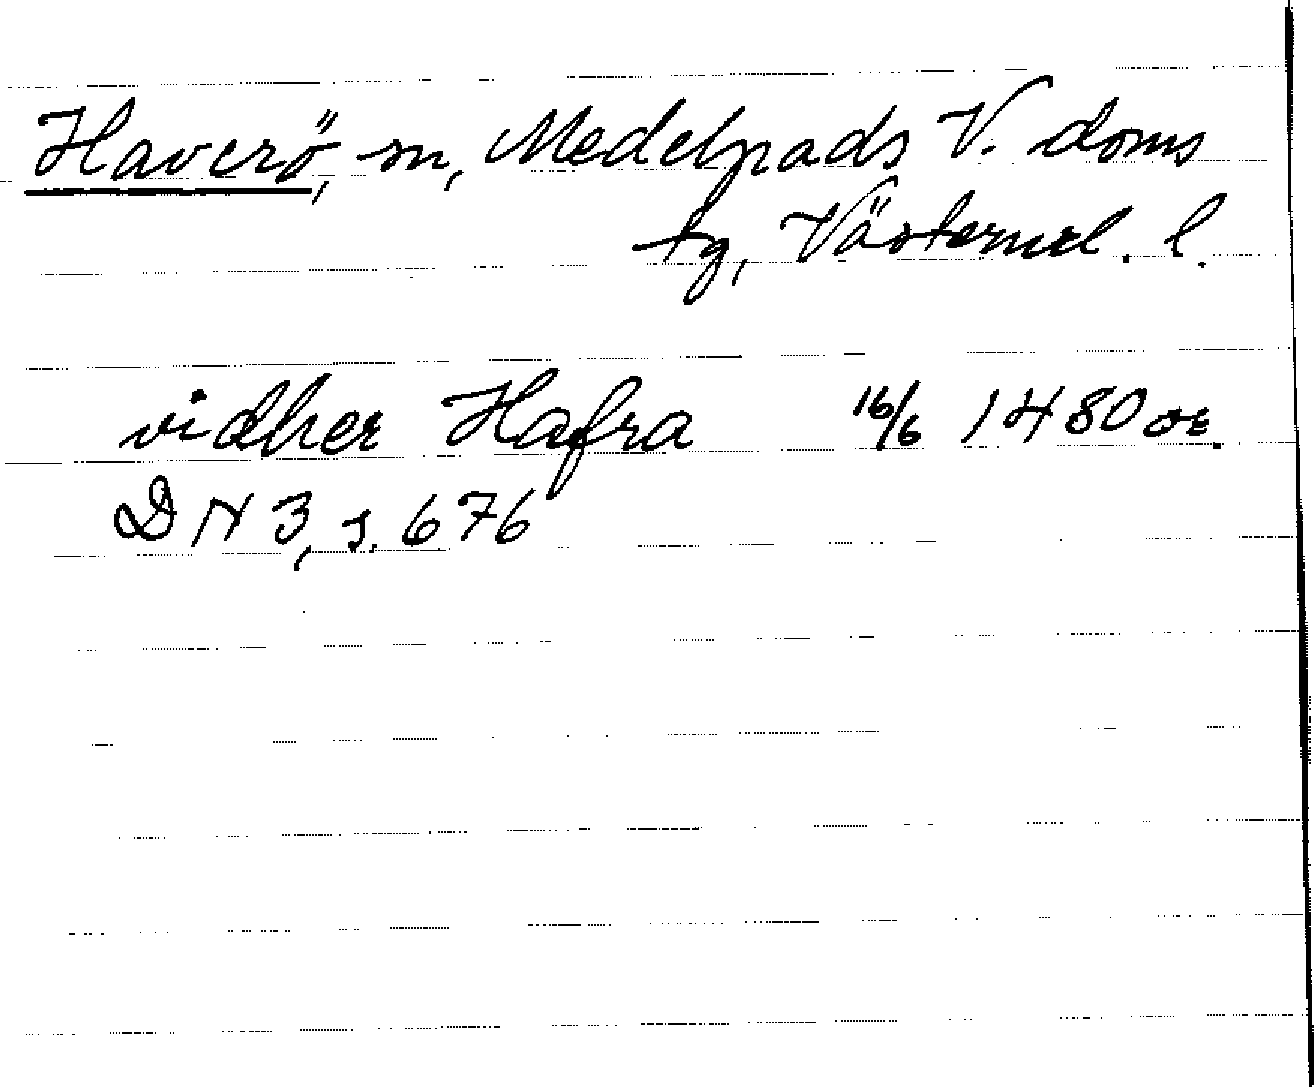 Haverö, sn, Medelpads V. doms
tg, Västernrl. l.
vidher Hafra 16/6 1480 or.
DN 3, s. 676